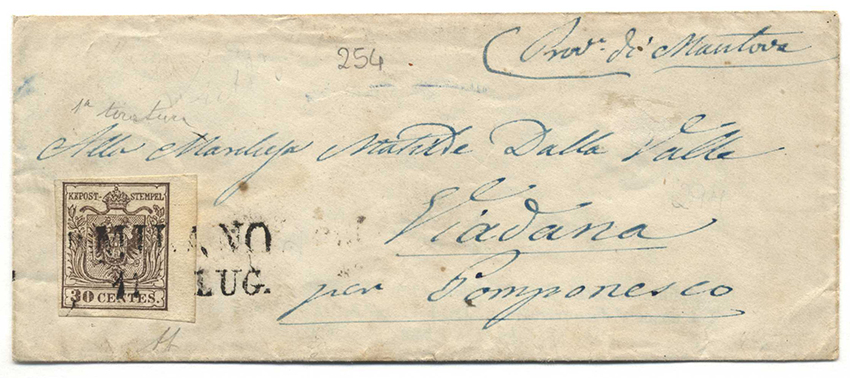 254
Prov.ᵃ di Mantova
1ª tiratura
Alla Marchesa Matilde Dalla Valle
KKPOST-STEMPEL
Viadana
MILANO
LUG.
30 CENTES.
per Pomponesco